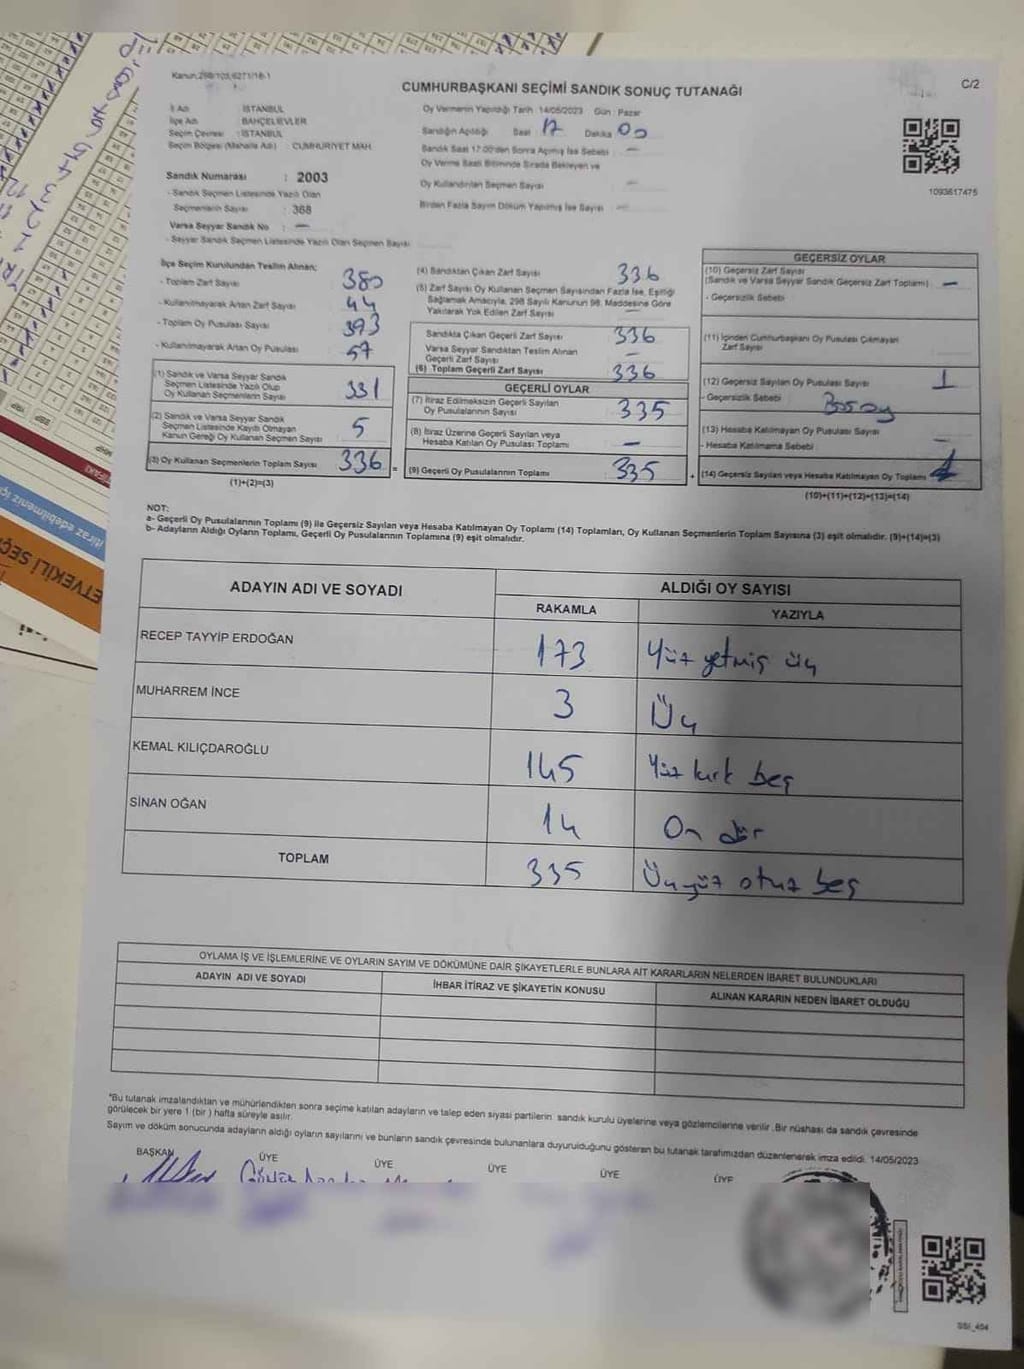 Kanun:298/103,6271/16-1
CUMHURBAŞKANI SEÇİMİ SANDIK SONUÇ TUTANAĞI
C/2
İl Adı : İSTANBUL
İlçe Adı : BAHÇELİEVLER
Seçim Çevresi : İSTANBUL
Seçim Bölgesi (Mahalle Adı) : CUMHURİYET MAH.
Sandık Numarası : 2003
- Sandık Seçmen Listesinde Yazılı Olan
Seçmenlerin Sayısı : 368
Varsa Seyyar Sandık No : —
- Seyyar Sandık Seçmen Listesinde Yazılı Olan Seçmen Sayısı
Oy Vermenin Yapıldığı Tarih :14/05/2023 Gün : Pazar
Sandığın Açıldığı Saat 17 Dakika 00
Sandık Saat 17:00'den Sonra Açılmış İse Sebebi —
Oy Verme Saati Bitiminde Sırada Bekleyen ve
Oy Kullandırılan Seçmen Sayısı —
Birden Fazla Sayım Döküm Yapılmış İse Sayısı —
1093617475
İlçe Seçim Kurulundan Teslim Alınan;
- Toplam Zarf Sayısı 380
- Kullanılmayarak Artan Zarf Sayısı 44
- Toplam Oy Pusulası Sayısı 393
- Kullanılmayarak Artan Oy Pusulası 57
(1) Sandık ve Varsa Seyyar Sandık
Seçmen Listesinde Yazılı Olup
Oy Kullanan Seçmenlerin Sayısı 331
(2) Sandık ve Varsa Seyyar Sandık
Seçmen Listesinde Kayıtlı Olmayan
Kanun Gereği Oy Kullanan Seçmen Sayısı 5
(3) Oy Kullanan Seçmenlerin Toplam Sayısı 336 =
(1)+(2)=(3)
(4) Sandıktan Çıkan Zarf Sayısı 336
(5) Zarf Sayısı Oy Kullanan Seçmen Sayısından Fazla İse, Eşitliği
Sağlamak Amacıyla, 298 Sayılı Kanunun 98. Maddesine Göre
Yakılarak Yok Edilen Zarf Sayısı —
Sandıkta Çıkan Geçerli Zarf Sayısı 336
Varsa Seyyar Sandıktan Teslim Alınan
Geçerli Zarf Sayısı —
(6) Toplam Geçerli Zarf Sayısı 336
GEÇERLİ OYLAR
(7) İtiraz Edilmeksizin Geçerli Sayılan
Oy Pusulalarının Sayısı 335
(8) İtiraz Üzerine Geçerli Sayılan veya
Hesaba Katılan Oy Pusulası Toplamı —
(9) Geçerli Oy Pusulalarının Toplamı 335 +
GEÇERSİZ OYLAR
(10) Geçersiz Zarf Sayısı
(Sandık ve Varsa Seyyar Sandık Geçersiz Zarf Toplamı) —
- Geçersizlik Sebebi
(11) İçinden Cumhurbaşkanı Oy Pusulası Çıkmayan
Zarf Sayısı
(12) Geçersiz Sayılan Oy Pusulası Sayısı 1
- Geçersizlik Sebebi Boş oy
(13) Hesaba Katılmayan Oy Pusulası Sayısı —
- Hesaba Katılmama Sebebi
(14) Geçersiz Sayılan veya Hesaba Katılmayan Oy Toplamı 1
(10)+(11)+(12)+(13)=(14)
NOT:
a- Geçerli Oy Pusulalarının Toplamı (9) ile Geçersiz Sayılan veya Hesaba Katılmayan Oy Toplamı (14) Toplamları, Oy Kullanan Seçmenlerin Toplam Sayısına (3) eşit olmalıdır. (9)+(14)=(3)
b- Adayların Aldığı Oyların Toplamı, Geçerli Oy Pusulalarının Toplamına (9) eşit olmalıdır.
ADAYIN ADI VE SOYADI
ALDIĞI OY SAYISI
RAKAMLA YAZIYLA
RECEP TAYYİP ERDOĞAN 173 Yüz yetmiş üç
MUHARREM İNCE 3 Üç
KEMAL KILIÇDAROĞLU 145 Yüz kırk beş
SİNAN OĞAN 14 On dör
TOPLAM 335 Üçyüz otuz beş
OYLAMA İŞ VE İŞLEMLERİNE VE OYLARIN SAYIM VE DÖKÜMÜNE DAİR ŞİKAYETLERLE BUNLARA AİT KARARLARIN NELERDEN İBARET BULUNDUKLARI
ADAYIN ADI VE SOYADI
İHBAR İTİRAZ VE ŞİKAYETİN KONUSU
ALINAN KARARIN NEDEN İBARET OLDUĞU
*Bu tutanak imzalandıktan ve mühürlendikten sonra seçime katılan adayların ve talep eden siyasi partilerin sandık kurulu üyelerine veya gözlemcilerine verilir. Bir nüshası da sandık çevresinde
görülecek bir yere 1 (bir ) hafta süreyle asılır.
Sayım ve döküm sonucunda adayların aldığı oyların sayılarını ve bunların sandık çevresinde bulunanlara duyurulduğunu gösteren bu tutanak tarafımızdan düzenlenerek imza edildi. 14/05/2023
BAŞKAN ÜYE ÜYE ÜYE ÜYE ÜYE
SSI_404